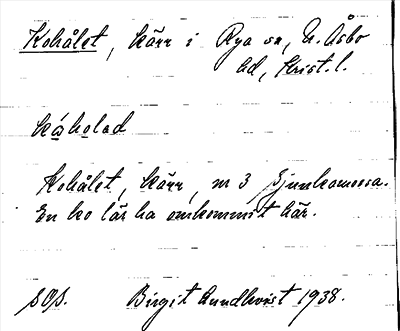 Kohålet, kärr i Rya sn, N. Åsbo
hd, Krist. l.
Kohålet, kärr, nr 3 Sjunkamossa.
En ko lär ha omkommit här.
SOS. Birgit Lundkvist 1938.